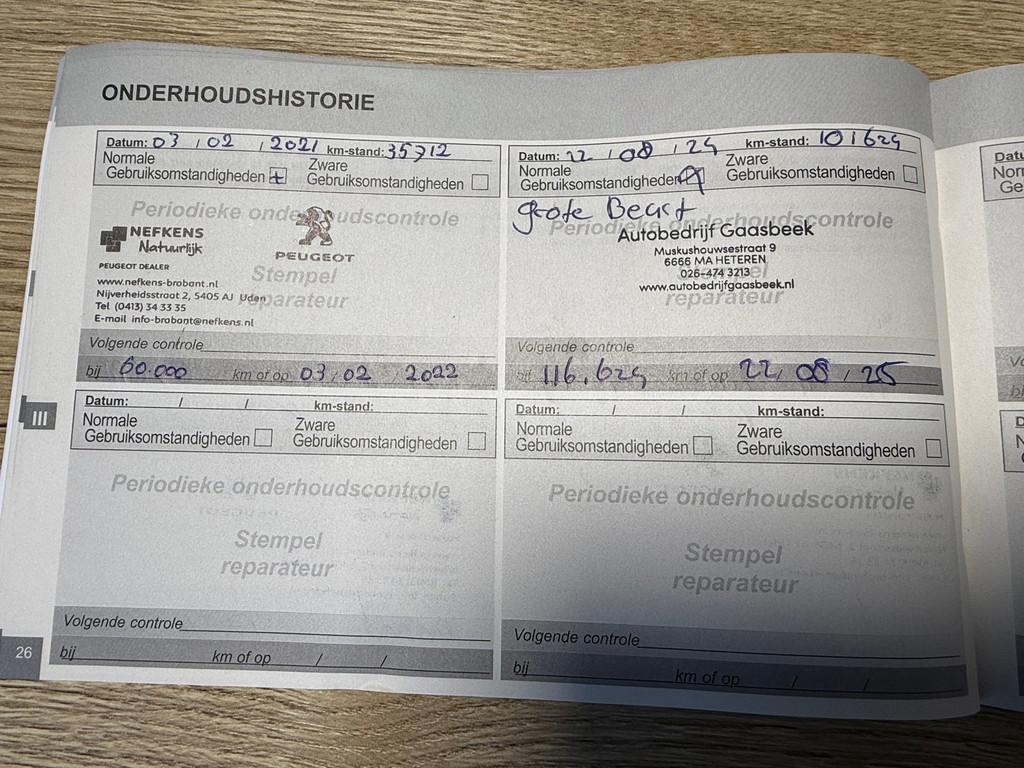 ONDERHOUDSHISTORIE
Datum: 03 / 02 / 2021 km-stand: 35712
Normale
Gebruiksomstandigheden
Zware
Gebruiksomstandigheden
Periodieke onderhoudscontrole
NEFKENS
Natuurlijk
PEUGEOT DEALER
PEUGEOT
Stempel
reparateur
www.nefkens-brabant.nl
Nijverheidsstraat 2, 5405 AJ Uden
Tel (0413) 34 33 35
E-mail info-brabant@nefkens.nl
Volgende controle
bij 60.000 km of op 03 / 02 / 2022
Datum: 22 / 08 / 24 km-stand: 101624
Normale
Gebruiksomstandigheden
Zware
Gebruiksomstandigheden
grote Beurt
Periodieke onderhoudscontrole
Autobedrijf Gaasbeek
Muskushouwsestraat 9
6666 MA HETEREN
026-474 3213
www.autobedrijfgaasbeek.nl
Stempel
reparateur
Volgende controle
bij 116.624 km of op 22 / 08 / 25
III
Datum: / / km-stand:
Normale
Gebruiksomstandigheden
Zware
Gebruiksomstandigheden
Periodieke onderhoudscontrole
Stempel
reparateur
Volgende controle
bij km of op / /
Datum: / / km-stand:
Normale
Gebruiksomstandigheden
Zware
Gebruiksomstandigheden
Periodieke onderhoudscontrole
Stempel
reparateur
Volgende controle
bij km of op / /
26